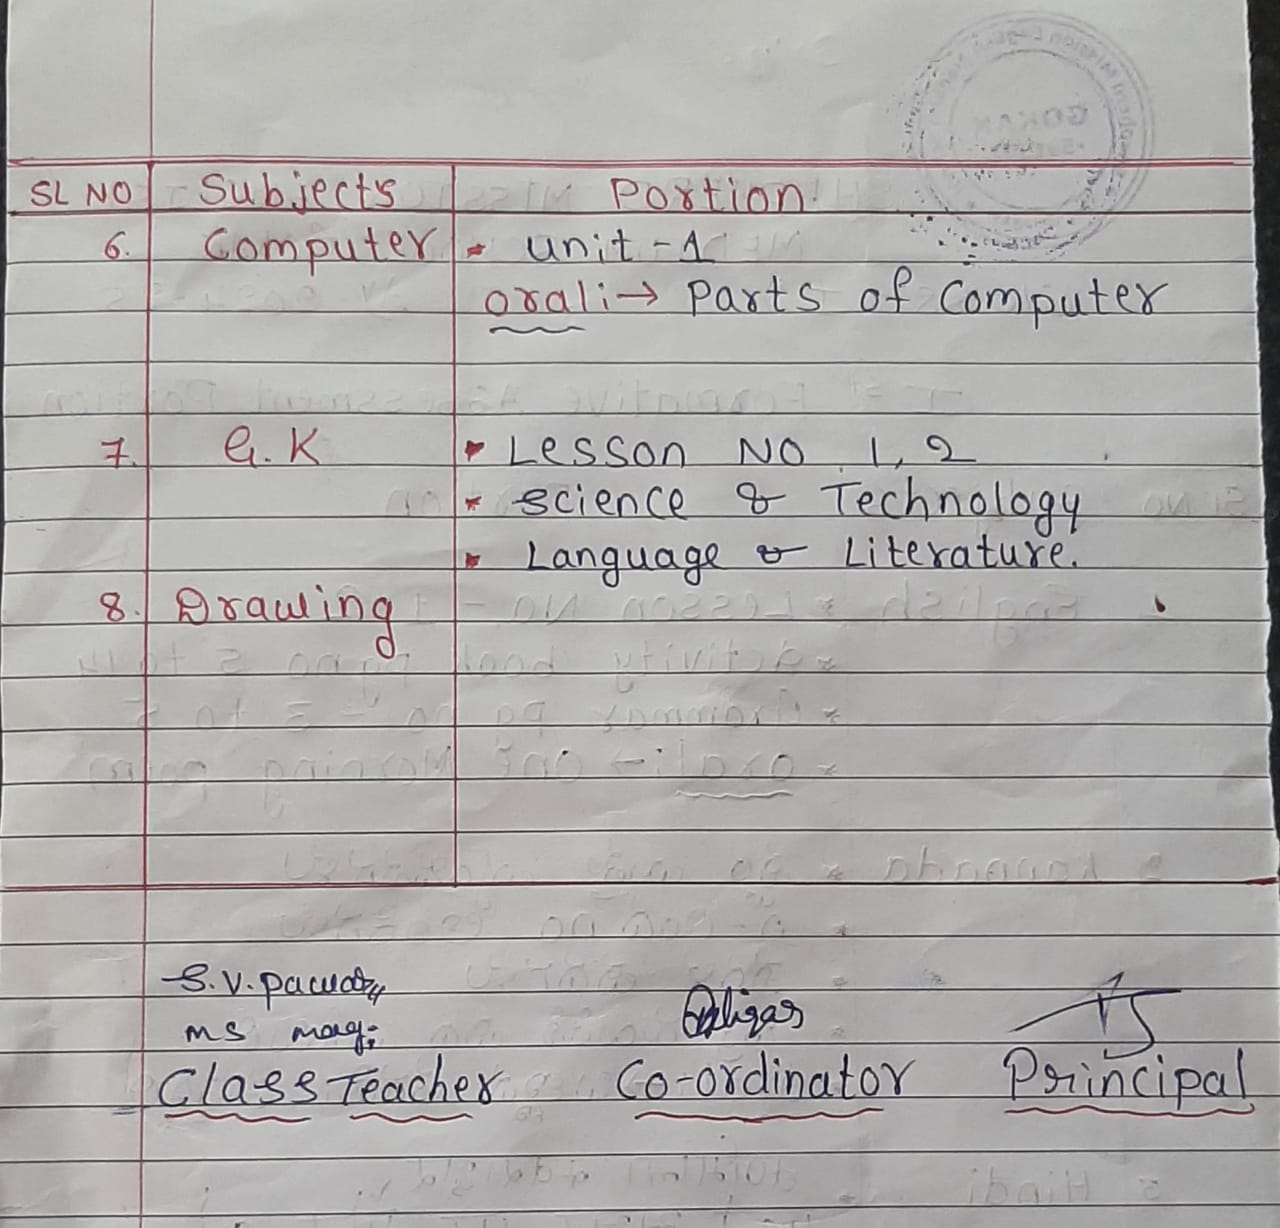 SL NO Subjects Portion
6. Computer • unit - 1
oral:→ Parts of Computer
7. G.K • Lesson No 1, 2
• Science & Technology
• Language & Literature.
8. Drawing
S.V. Pawar
MS
Class Teacher Co-ordinator Principal